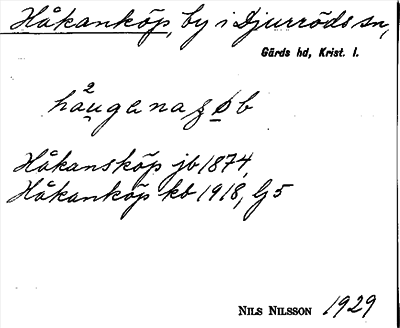 Håkanköp, by i Djurröds sn,
Gärds hd, Krist. l.
Håkansköp jb 1874,
Håkanköp kb 1918, Gj 5
NILS NILSSON 1929